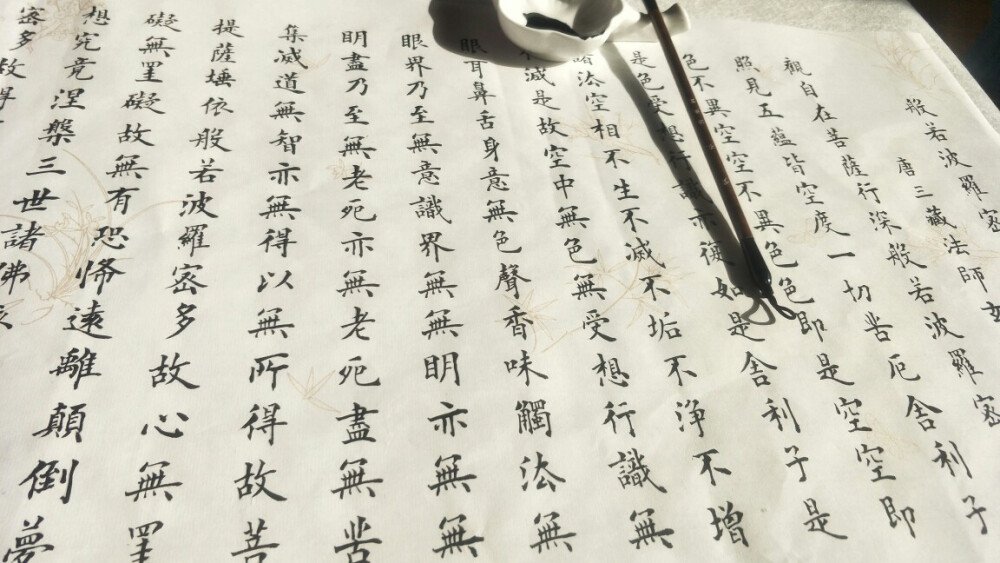 般若波羅密
唐三藏法師玄
觀自在菩薩行深般若波羅密
照見五蘊皆空度一切苦厄舍利子
色不異空空不異色色即是空空即
是色受想行識亦復如是舍利子是
諸法空相不生不滅不垢不淨不增
減是故空中無色無受想行識無
眼耳鼻舌身意無色聲香味觸法無
眼界乃至無意識界無無明亦無無
明盡乃至無老死亦無老死盡無苦
集滅道無智亦無得以無所得故菩
提薩埵依般若波羅密多故心無罣
礙無罣礙故無有恐怖遠離顛倒夢
想究竟涅槃三世諸佛
密多故得